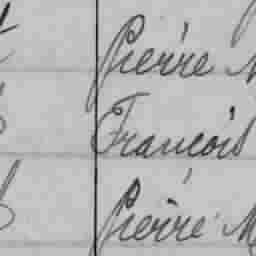 Pierre M
François
Pierre M